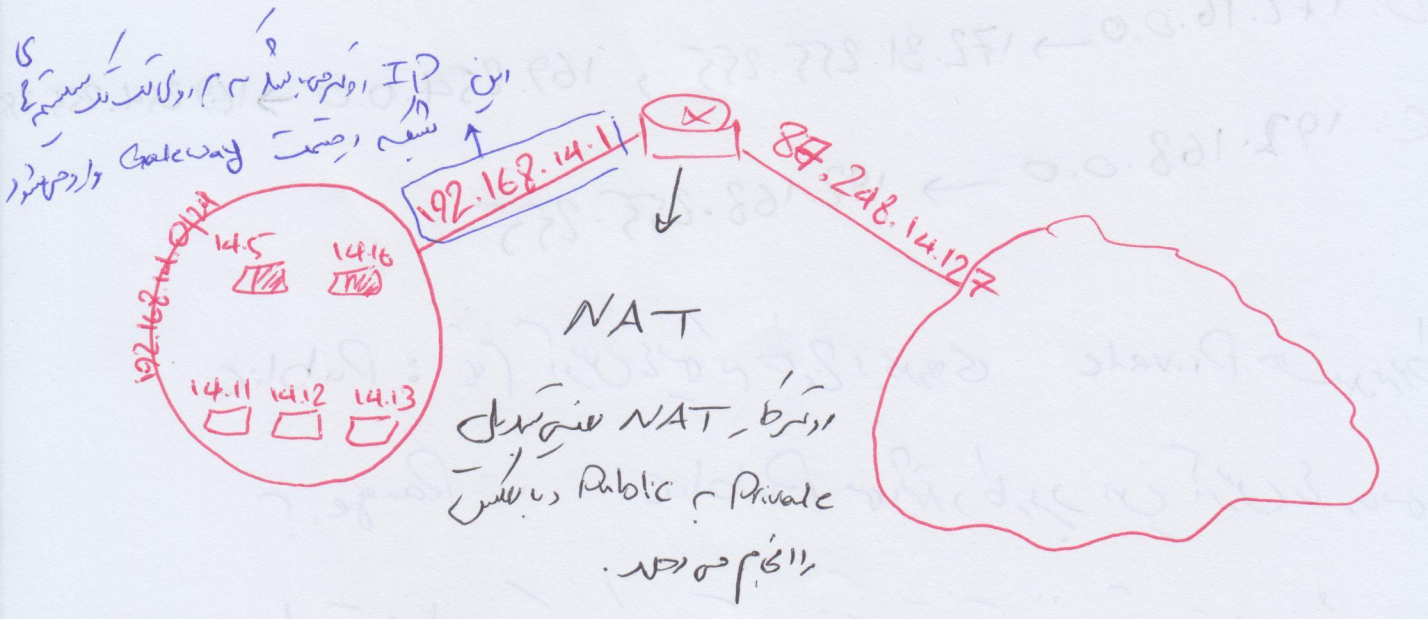 این IP روتر می‌باشد که بر روی تک تک سیستم‌های
شبکه در قسمت Gateway وارد می‌شود
192.168.14.1
87.248.14.127
192.168.14.0/24
14.5
14.16
14.11
14.12
14.13
NAT
روتر کار NAT یعنی تبدیل
Private به Public و بالعکس
را انجام می دهد.